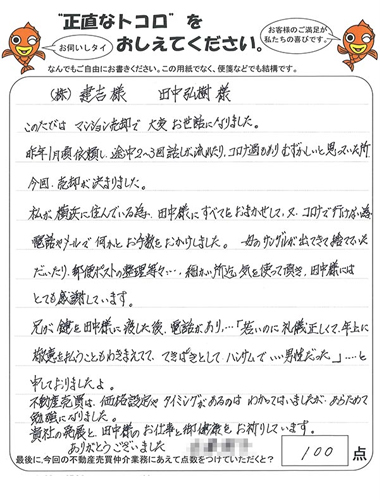 "正直なトコロ"を
おしえてください。
お伺いしタイ
お客様のご満足が
私たちの喜びです。
なんでもご自由にお書きください。この用紙でなく、便箋などでも結構です。
(株) 建吉様 田中弘樹様
このたびは マンション売却で 大変お世話になりました。
昨年1月頃依頼し、途中2~3回話しが流れたり、コロナ過もあり むずかしいと思っていた所
今回、売却が決まりました。
私が 横浜に住んでいる為、田中様にすべておまかせして、又、コロナで行けない為
電話やメールで 何かとお手数をおかけしました。 のサングルが出てきて 捨てていた
だいたり、郵便ポストの整理等々・・・細かい所迄 気を使って頂き、田中様には
とても感謝しています。
兄が 鍵を田中様に渡した後、電話があり・・・「若いのに礼儀正しくて、年上に
敬意を払うこともわきまえてて、てきぱきとして ハンサムで いい男性だった。」・・・・・と
申しておりましたよ。
不動産売買は、価格設定や タイミングがあるのは わかってはいましたが、あらためて
勉強になりました。
貴社の発展と、田中様のお仕事と御健康を お祈りしています。
ありがとうございました
最後に、今回の不動産売買仲介業務にあえて点数をつけていただくと?
100 点